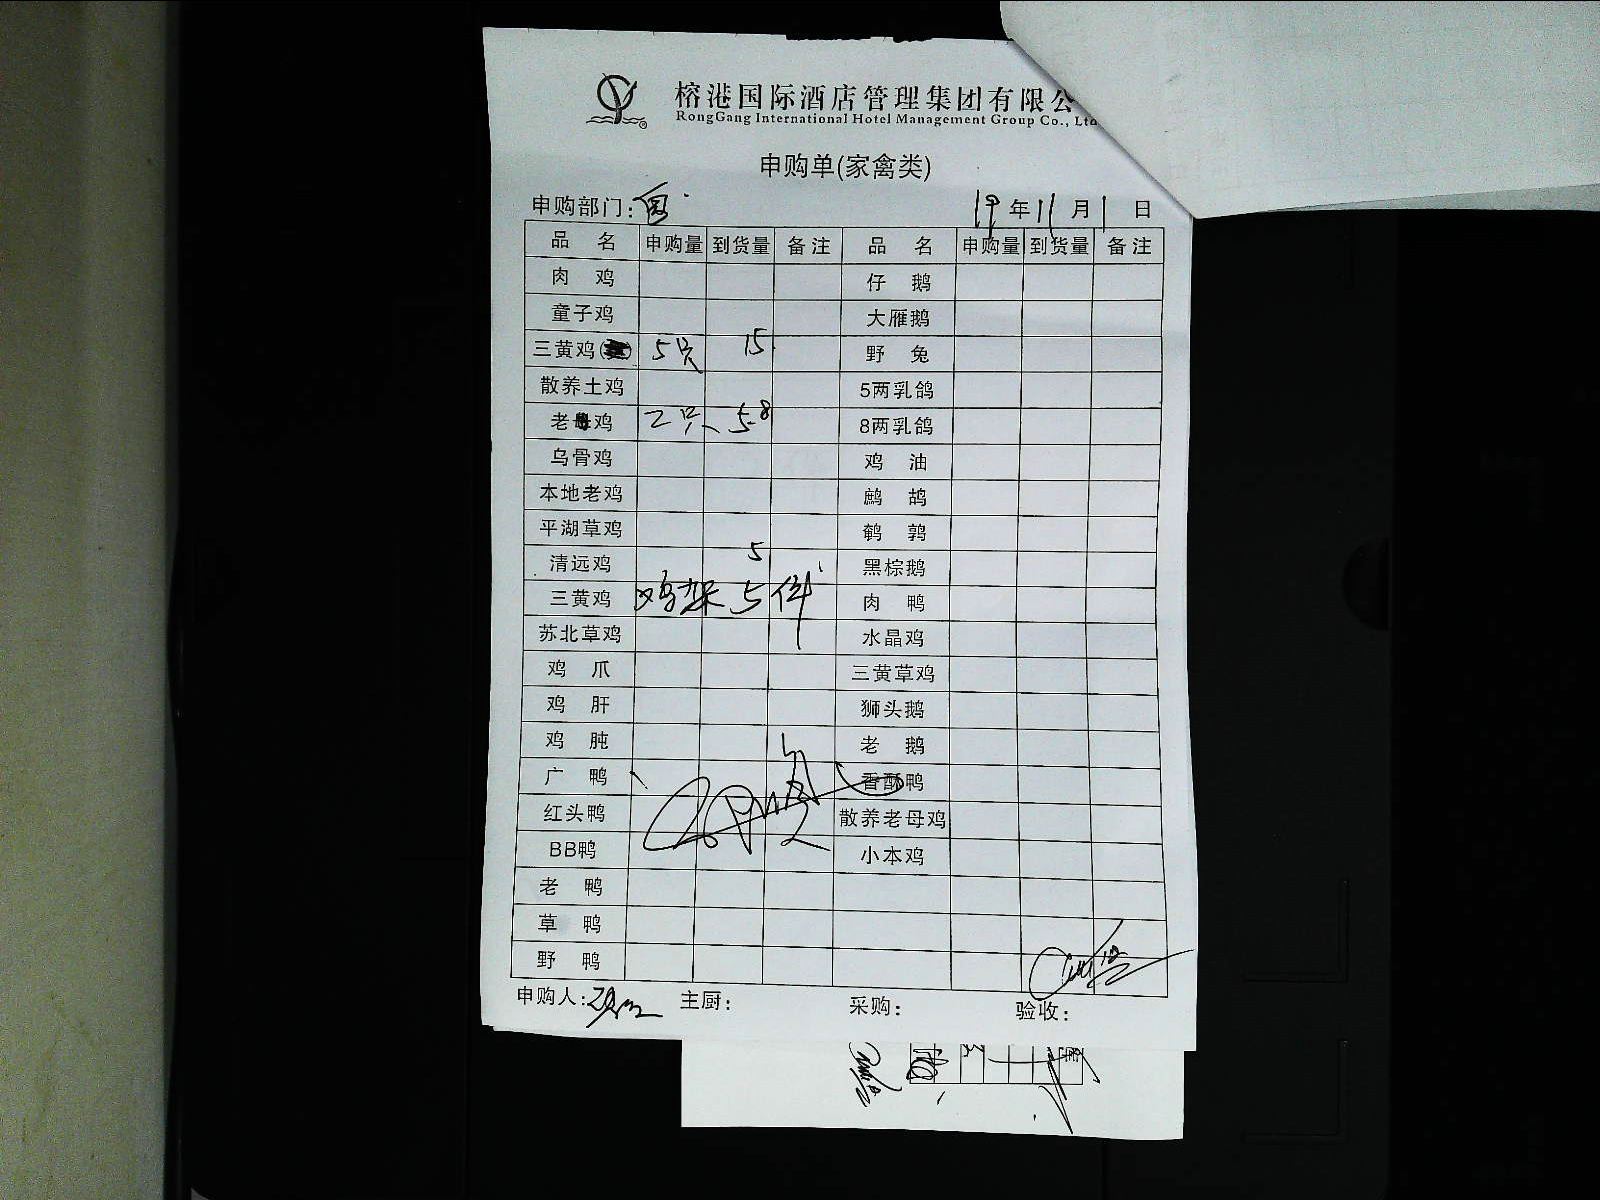 榕港国际酒店管理集团有限公
RongGang International Hotel Management Group Co., Ltd
申购单(家禽类)
申购部门： 19年11月1日
品 名 申购量 到货量 备注 品 名 申购量 到货量 备注
肉 鸡 仔 鹅
童子鸡 大雁鹅
三黄鸡( ) 5只 15 野 兔
散养土鸡 5两乳鸽
老母鸡 2只 5.8 8两乳鸽
乌骨鸡 鸡 油
本地老鸡 鹧 鸪
平湖草鸡 鹌 鹑
清远鸡 5 黑棕鹅
三黄鸡 鸡架 5件 肉 鸭
苏北草鸡 水晶鸡
鸡 爪 三黄草鸡
鸡 肝 狮头鹅
鸡 肫 老 鹅
广 鸭 香酥鸭
红头鸭 散养老母鸡
BB鸭 小本鸡
老 鸭
草 鸭
野 鸭
申购人: 主厨: 采购: 验收: